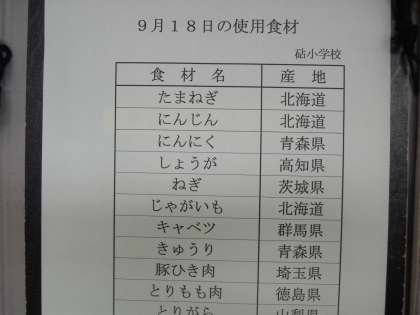 9月18日の使用食材
砧小学校
食材名 産地
たまねぎ 北海道
にんじん 北海道
にんにく 青森県
しょうが 高知県
ねぎ 茨城県
じゃがいも 北海道
キャベツ 群馬県
きゅうり 青森県
豚ひき肉 埼玉県
とりもも肉 徳島県
とりがら 山梨県